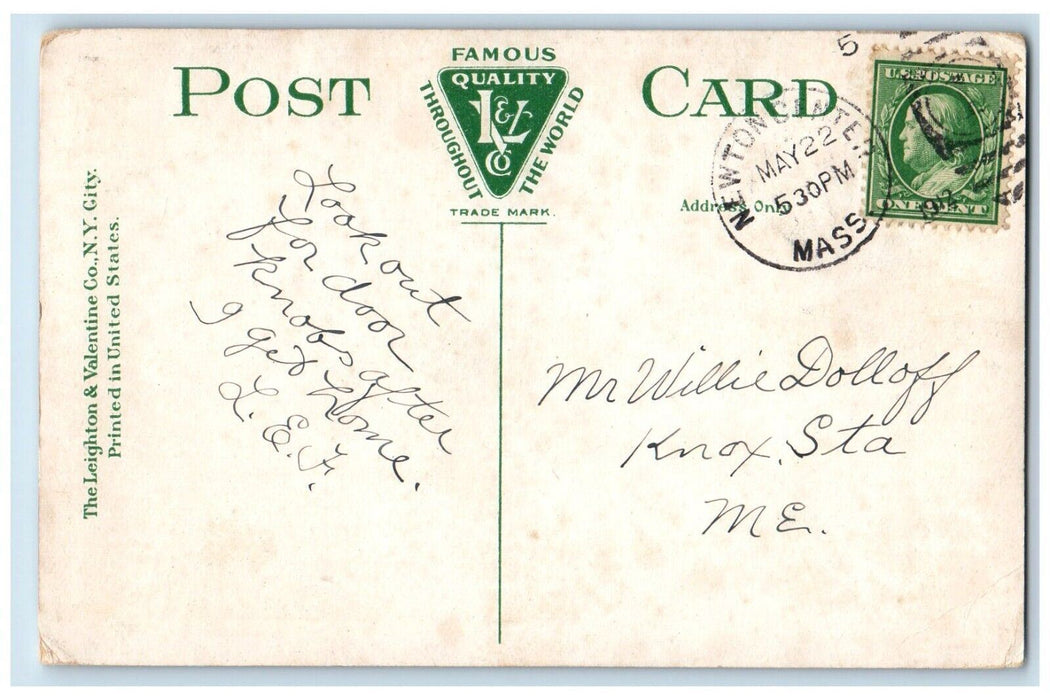 POST CARD
FAMOUS
QUALITY
THROUGHOUT
THE WORLD
L & V
Co
TRADE MARK.
Address Only
5
NEWTON CENTE
MAY 22
5 30 PM
1912
MASS.
U.S. POSTAGE
ONE CENT
The Leighton & Valentine Co., N.Y. City.
Printed in United States.
Look out
for door
knobs after
I get home.
L. E. F.
Mr Willie Dolloff
Knox, Sta
ME.